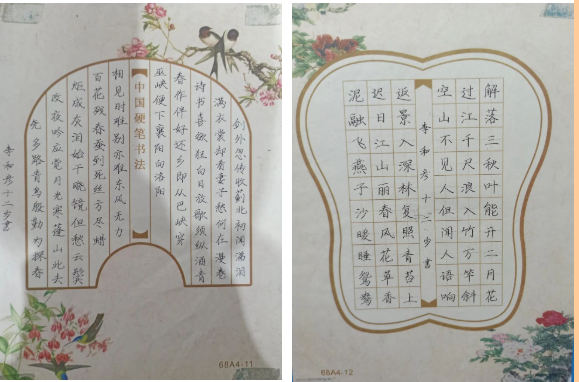 剑外忽传收蓟北初闻涕泪
满衣裳却看妻子愁何在漫卷
诗书喜欲狂白日放歌须纵酒青
春作伴好还乡即从巴峡穿
巫峡便下襄阳向洛阳
中国硬笔书法
相见时难别亦难东风无力
百花残春蚕到死丝方尽蜡
炬成灰泪始干晓镜但愁云鬓
改夜吟应觉月光寒蓬山此去
无多路青鸟殷勤为探看
李和彦十二岁书
68A4-11
解落三秋叶能开二月花
过江千尺浪入竹万竿斜
空山不见人但闻人语响
李和彦十二岁书
返景入深林复照青苔上
迟日江山丽春风花草香
泥融飞燕子沙暖睡鸳鸯
68A4-12